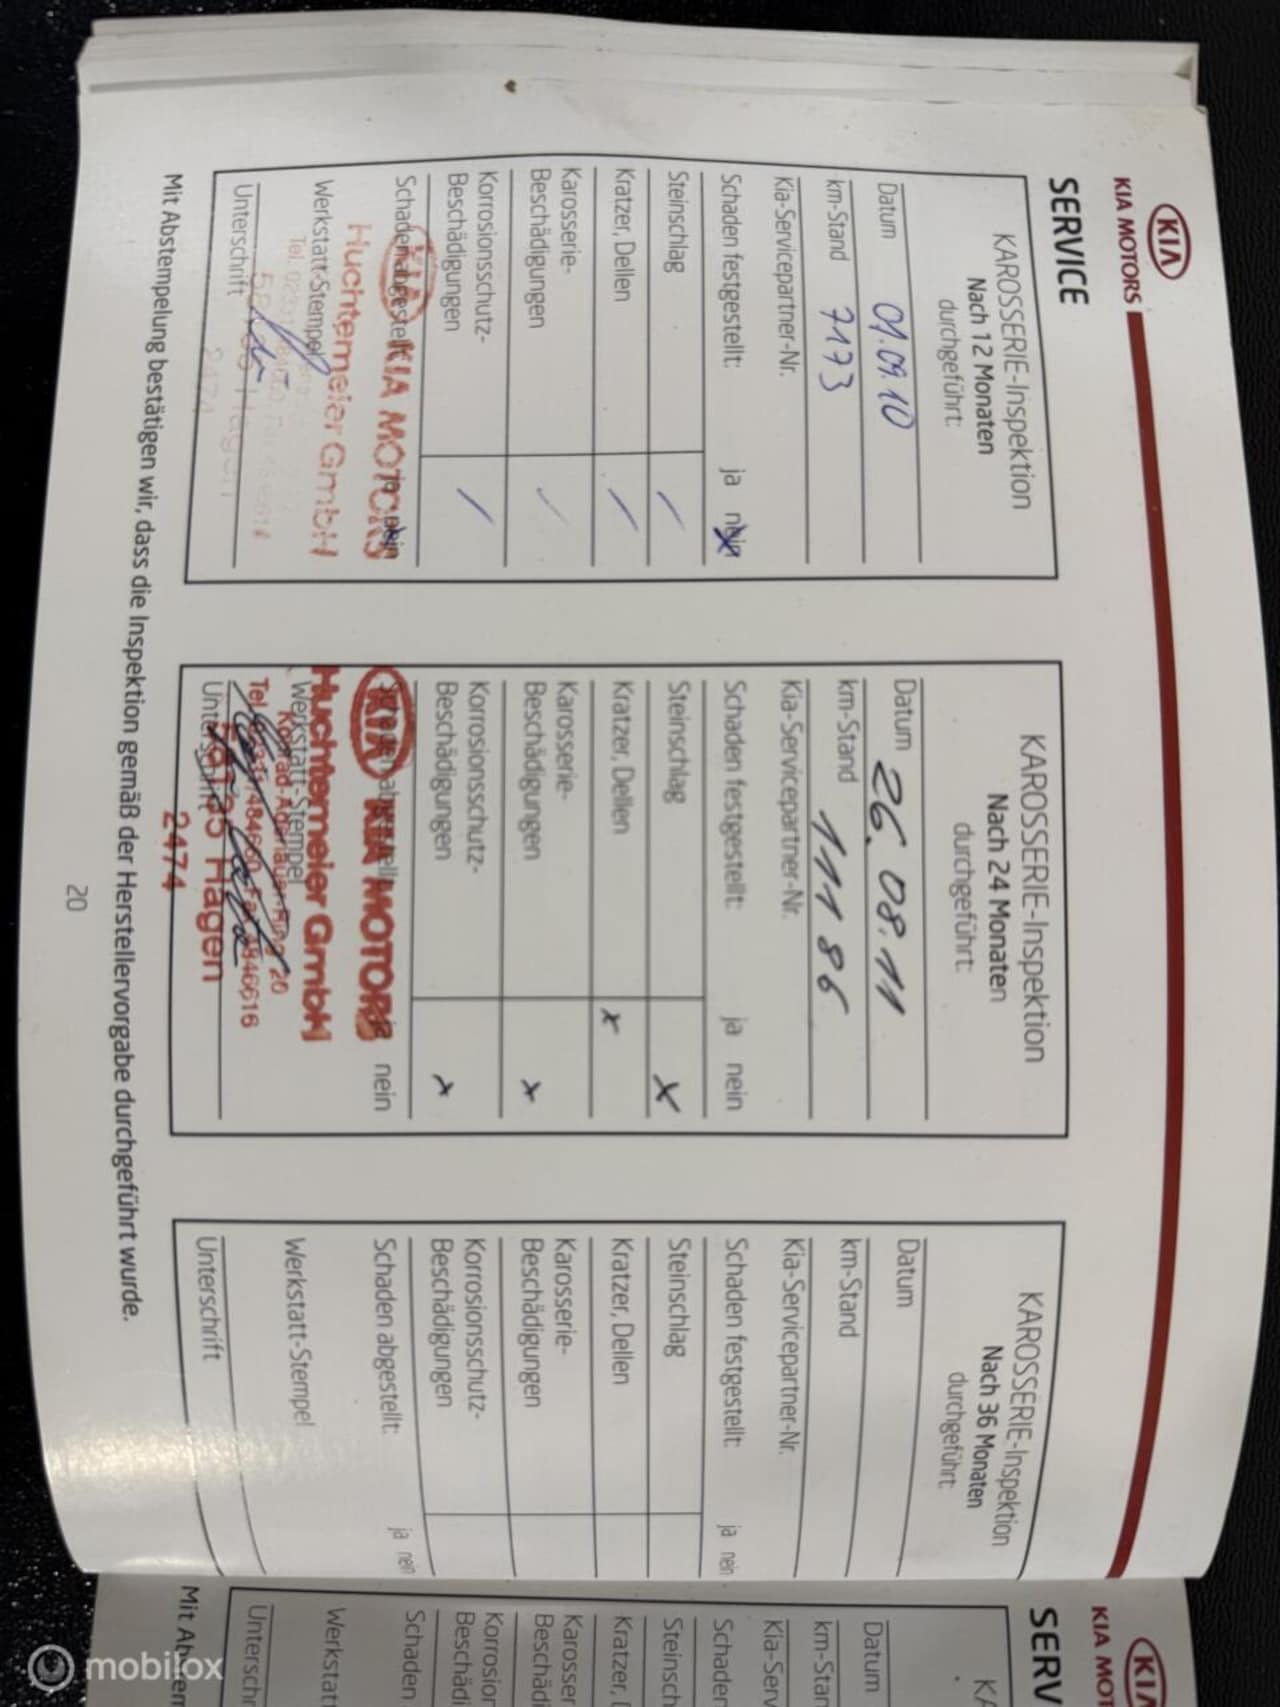 KIA
KIA MOTORS
SERVICE
KAROSSERIE-Inspektion
Nach 12 Monaten
durchgeführt:
Datum 01.09.10
km-Stand 7173
Kia-Servicepartner-Nr.
Schaden festgestellt: ja nein
Steinschlag
Kratzer, Dellen
Karosserie-
Beschädigungen
Korrosionsschutz-
Beschädigungen
Schaden abgestellt: ja nein
KIA KIA MOTORS
Huchtemeier GmbH
Werkstatt-Stempel
Unterschrift
2474
KAROSSERIE-Inspektion
Nach 24 Monaten
durchgeführt:
Datum 26.08.11
km-Stand 11186
Kia-Servicepartner-Nr.
Schaden festgestellt: ja nein
Steinschlag x
Kratzer, Dellen x
Karosserie-
Beschädigungen x
Korrosionsschutz-
Beschädigungen x
Schaden abgestellt: ja nein
KIA KIA MOTORS
Huchtemeier GmbH
Werkstatt-Stempel
Konrad-Adenauer-Ring 20
Unterschrift
Hagen
2474
KAROSSERIE-Inspektion
Nach 36 Monaten
durchgeführt:
Datum
km-Stand
Kia-Servicepartner-Nr.
Schaden festgestellt: ja nein
Steinschlag
Kratzer, Dellen
Karosserie-
Beschädigungen
Korrosionsschutz-
Beschädigungen
Schaden abgestellt: ja nein
Werkstatt-Stempel
Unterschrift
Mit Abstempelung bestätigen wir, dass die Inspektion gemäß der Herstellervorgabe durchgeführt wurde.
20
KIA
KIA MOT
SERV
KA
Datum
km-Stan
Kia-Serv
Schaden
Steinsch
Kratzer,
Karosser
Beschädi
Korrosion
Beschädi
Schaden
Werkstatt
Unterschr
Mit Abstem
mobilox